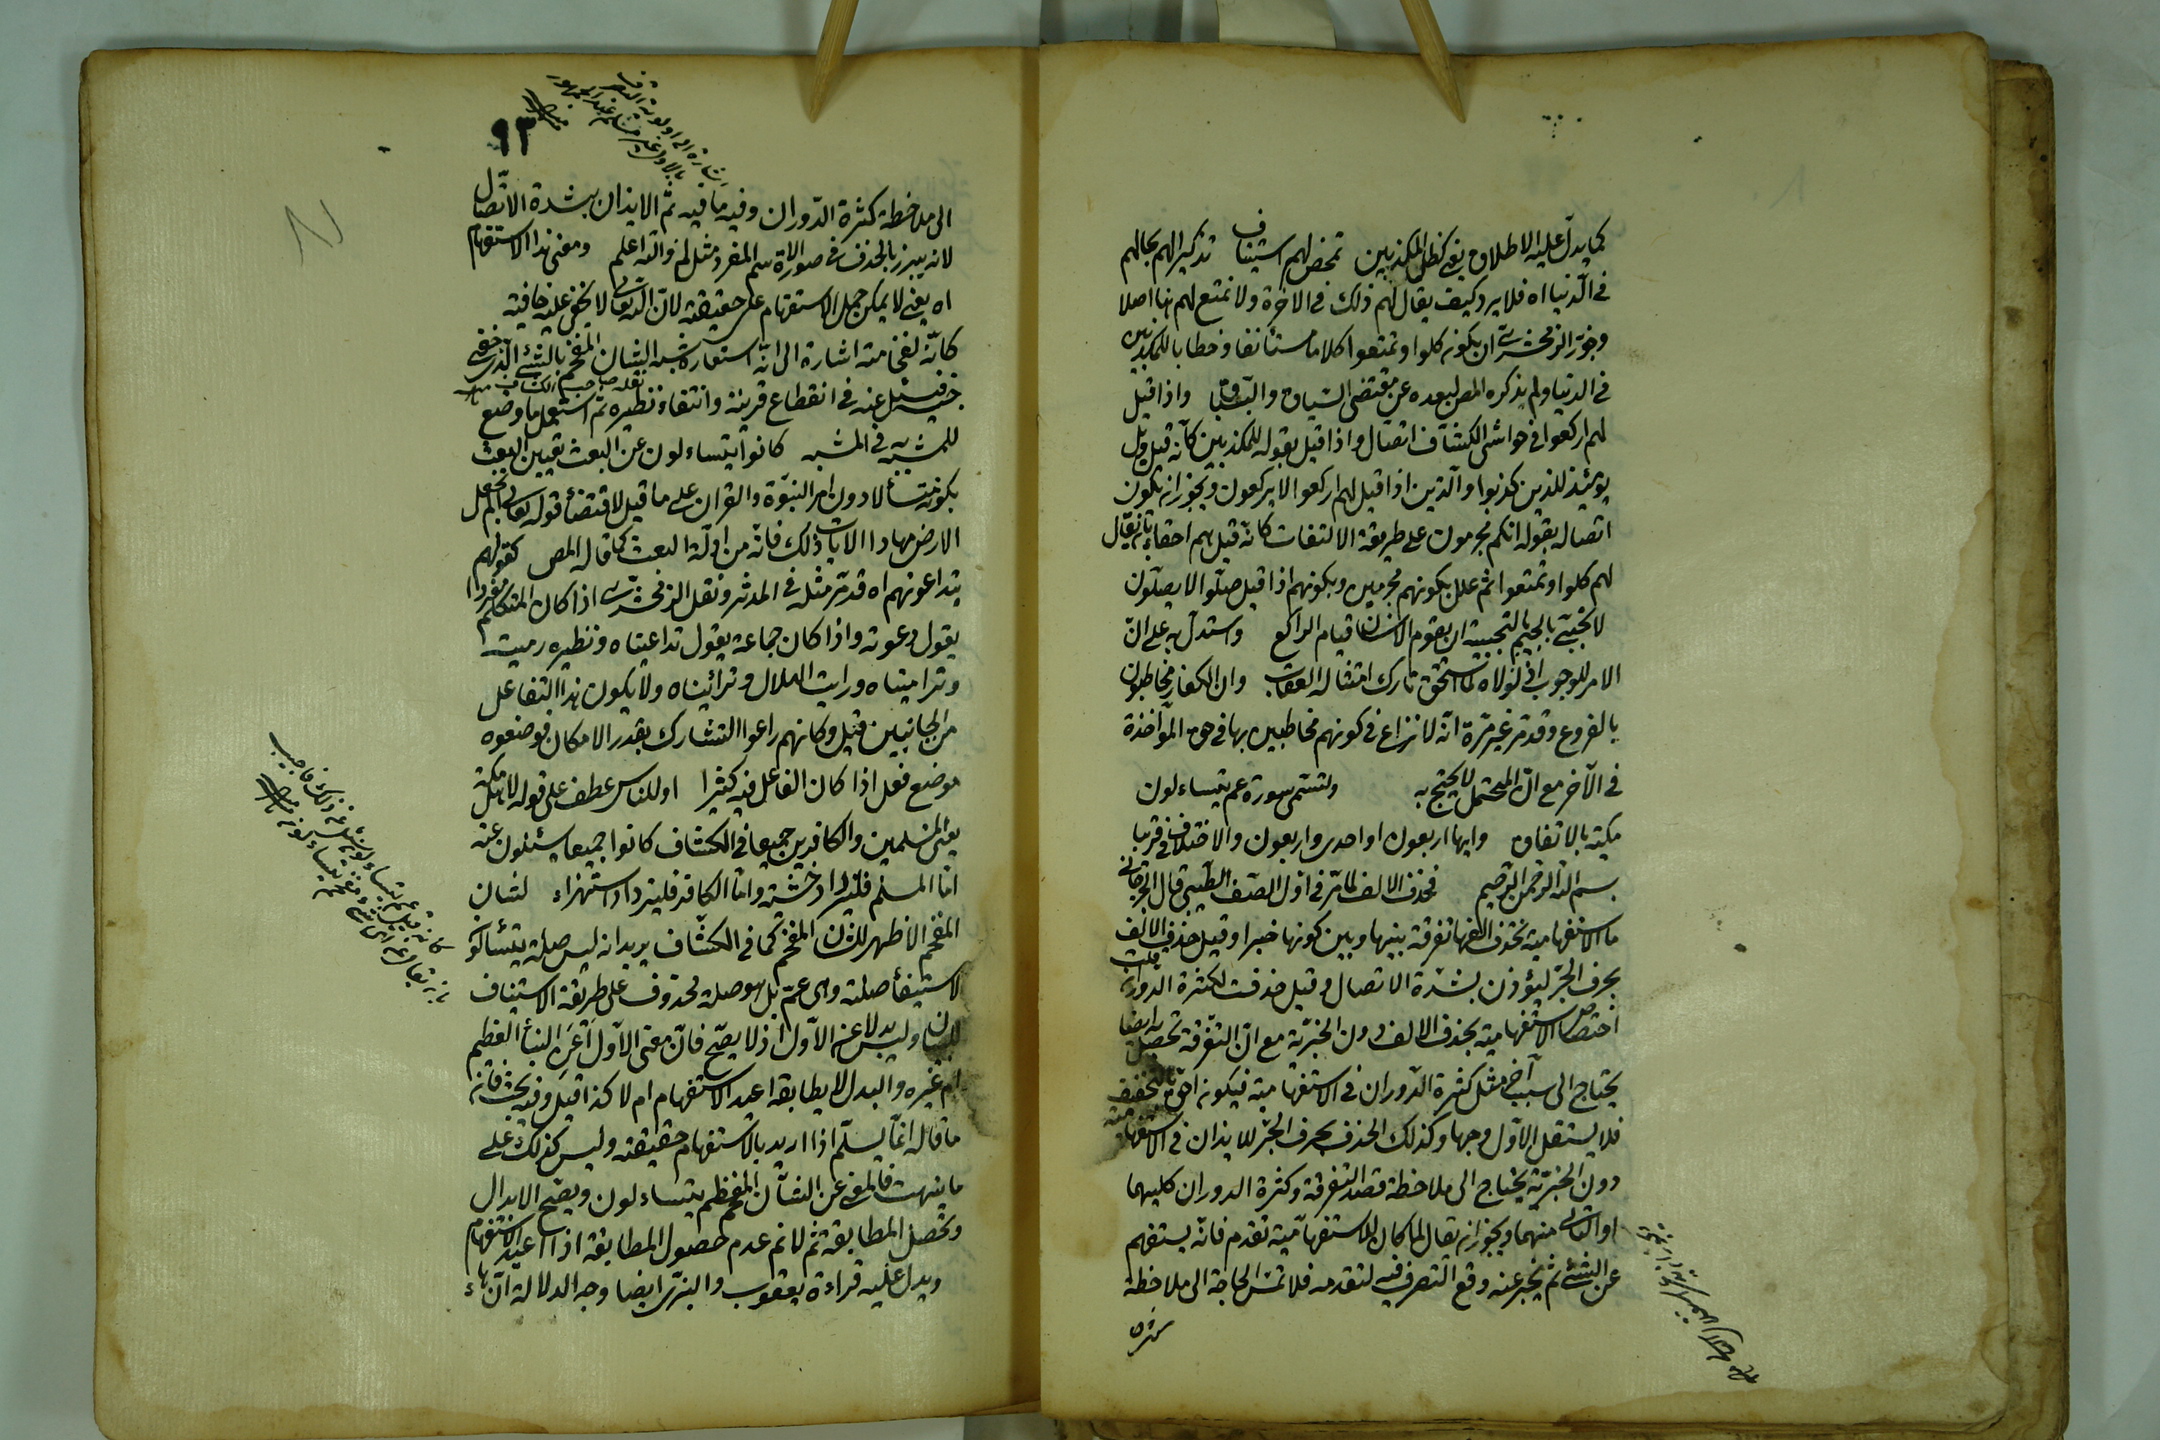 كما يدل عليه الاطلاق يعني كظل المكذبين تمحض لهم استيناف تذكيرا لهم بحالهم
في الدنيا اه فلا يرد كيف يقال لهم ذلك في الاخرة ولا تمتع لهم بها اصلا
وجوز الزمخشري ان يكون كلوا وتمتعوا كلاما مستأنفا وخطابا للمكذبين
في الدنيا ولم يذكره المص لبعده عن مقتضى السياق والسباق واذا قيل
لهم اركعوا في حواشي الكشاف اتصال واذا قيل بقوله للمكذبين كأنه قيل ويل
يومئذ للذين كذبوا والذين اذا قيل لهم اركعوا لا يركعون ويجوز ان يكون
اتصاله بقوله انكم مجرمون على طريقة الالتفات كانه قيل هم احقاء بان يقال
لهم كلوا وتمتعوا ثم علل بكونهم مجرمين وبكونهم اذا قيل صلوا لا يصلون
لا نجبي بالجيم التجبية ان يقوم الانسان قيام الراكع واستدل به على ان
الامر للوجوب اذ لولاه لما استحق تارك امتثاله العقاب وان الكفار مخاطبون
بالفروع وقد مر غير مرة انه لا نزاع في كونهم مخاطبين بها في حق المؤاخذة
في الآخرة مع ان المحتمل لا يحتج به وتسمى سورة عم يتساءلون
مكية بالاتفاق وايها اربعون او احدى واربعون والاختلاف في قريبا
بسم الله الرحمن الرحيم فحذف الالف لما مر في اول الصف الطيبي قال الجرجاني
ما الاستفهامية تحذف الفها تفرقة بينها وبين كونها خبرا وقيل حذف الالف
بحرف الجر ليؤذن بشدة الاتصال وقيل حذفت لكثرة الدوران قلت
اختصاص الاستفهامية بحذف الالف دون الخبرية مع ان التفرقة تحصل به ايضا
يحتاج الى سبب آخر مثل كثرة الدوران في الاستفهامية فيكون احق بالتخفيف
فلا يستقل الاول وجها وكذلك الحذف بحرف الجر للايذان في الاستفهامية
دون الخبرية يحتاج الى ملاحظة قصد التفرقة وكثرة الدوران كليهما
او الثاني منهما ويجوز ان يقال لما كان الاستفهامية تقدم فانه يستفهم
عن الشئ ثم يخبر عنه وقع التصرف فيه لتقدمه فلا تمس الحاجة الى ملاحظة
كثرة
٩٣
الى ملاحظة كثرة الدوران وفيه ما فيه ثم الايذان بشدة الاتصال
لانه يبرز بالحذف في صورة اسم المفرد مثل لم والله اعلم ومعنى هذا الاستفهام
اه يعني لا يمكن حمل الاستفهام على حقيقته لان الله تعالى لا يخفى عليه خافية
كانه لفخامته اشارة الى انه استعارة شبه الشان المفخم بالشئ الذي خفي
جنسه فيسئل عنه في انقطاع قرينه وانتفاء نظيره ثم استعمل ما وضع
للمشبه به في المشبه كانوا يتساءلون عن البعث تعيين البعث
بكونه متسألا دون امر النبوة والقران على ما قيل لاقتضاء قوله تعالى الم نجعل
الارض مهادا الايات ذلك فانه من ادلة البعث كما قال المص كقولهم
يتداعونهم اه قد مر مثله في المدثر ونقل الزمخشري اذا كان المتكلم مفردا
يقول دعوته واذا كان جماعة يقول تداعيناه ونظيره رميته
وتراميناه ورايت الهلال وترائيناه ولا يكون هذا التفاعل
من الجانبين قيل وكانهم راعوا التشارك بقدر الامكان فوضعوه
موضع فعل اذا كان الفاعل فيه كثيرا او للناس عطف على قوله لاهل مكة
يعني المسلمين والكافرين جميعا في الكشاف كانوا جميعا يسئلون عنه
اما المسلم فليزداد خشية واما الكافر فليزداد استهزاء لشان
المفخم الاظهر للشان المفخم كما في الكشاف يريد انه ليس صلة يتسألون
لاستيفاء صلته وهي عم بل هو صلة محذوف على طريقة الاستيناف
للبيان وليس بدلا عن الاول اذ لا يصح فان معنى الاول أعن النبأ العظيم
ام غيره والبدل لا يطابقه اعيد الاستفهام ام لا كذا قيل وفيه بحث فانه
ما قاله انما يسلم اذا اريد بالاستفهام حقيقته وليس كذلك على
ما نبهت فالمعنى عن الشأن المفخم يتساءلون ويصح الابدال
وتحصل المطابقة ثم لا نم عدم حصول المطابقة اذا اعيد الاستفهام
ويدل عليه قراءة يعقوب والبزي ايضا وجه الدلالة ان هاء